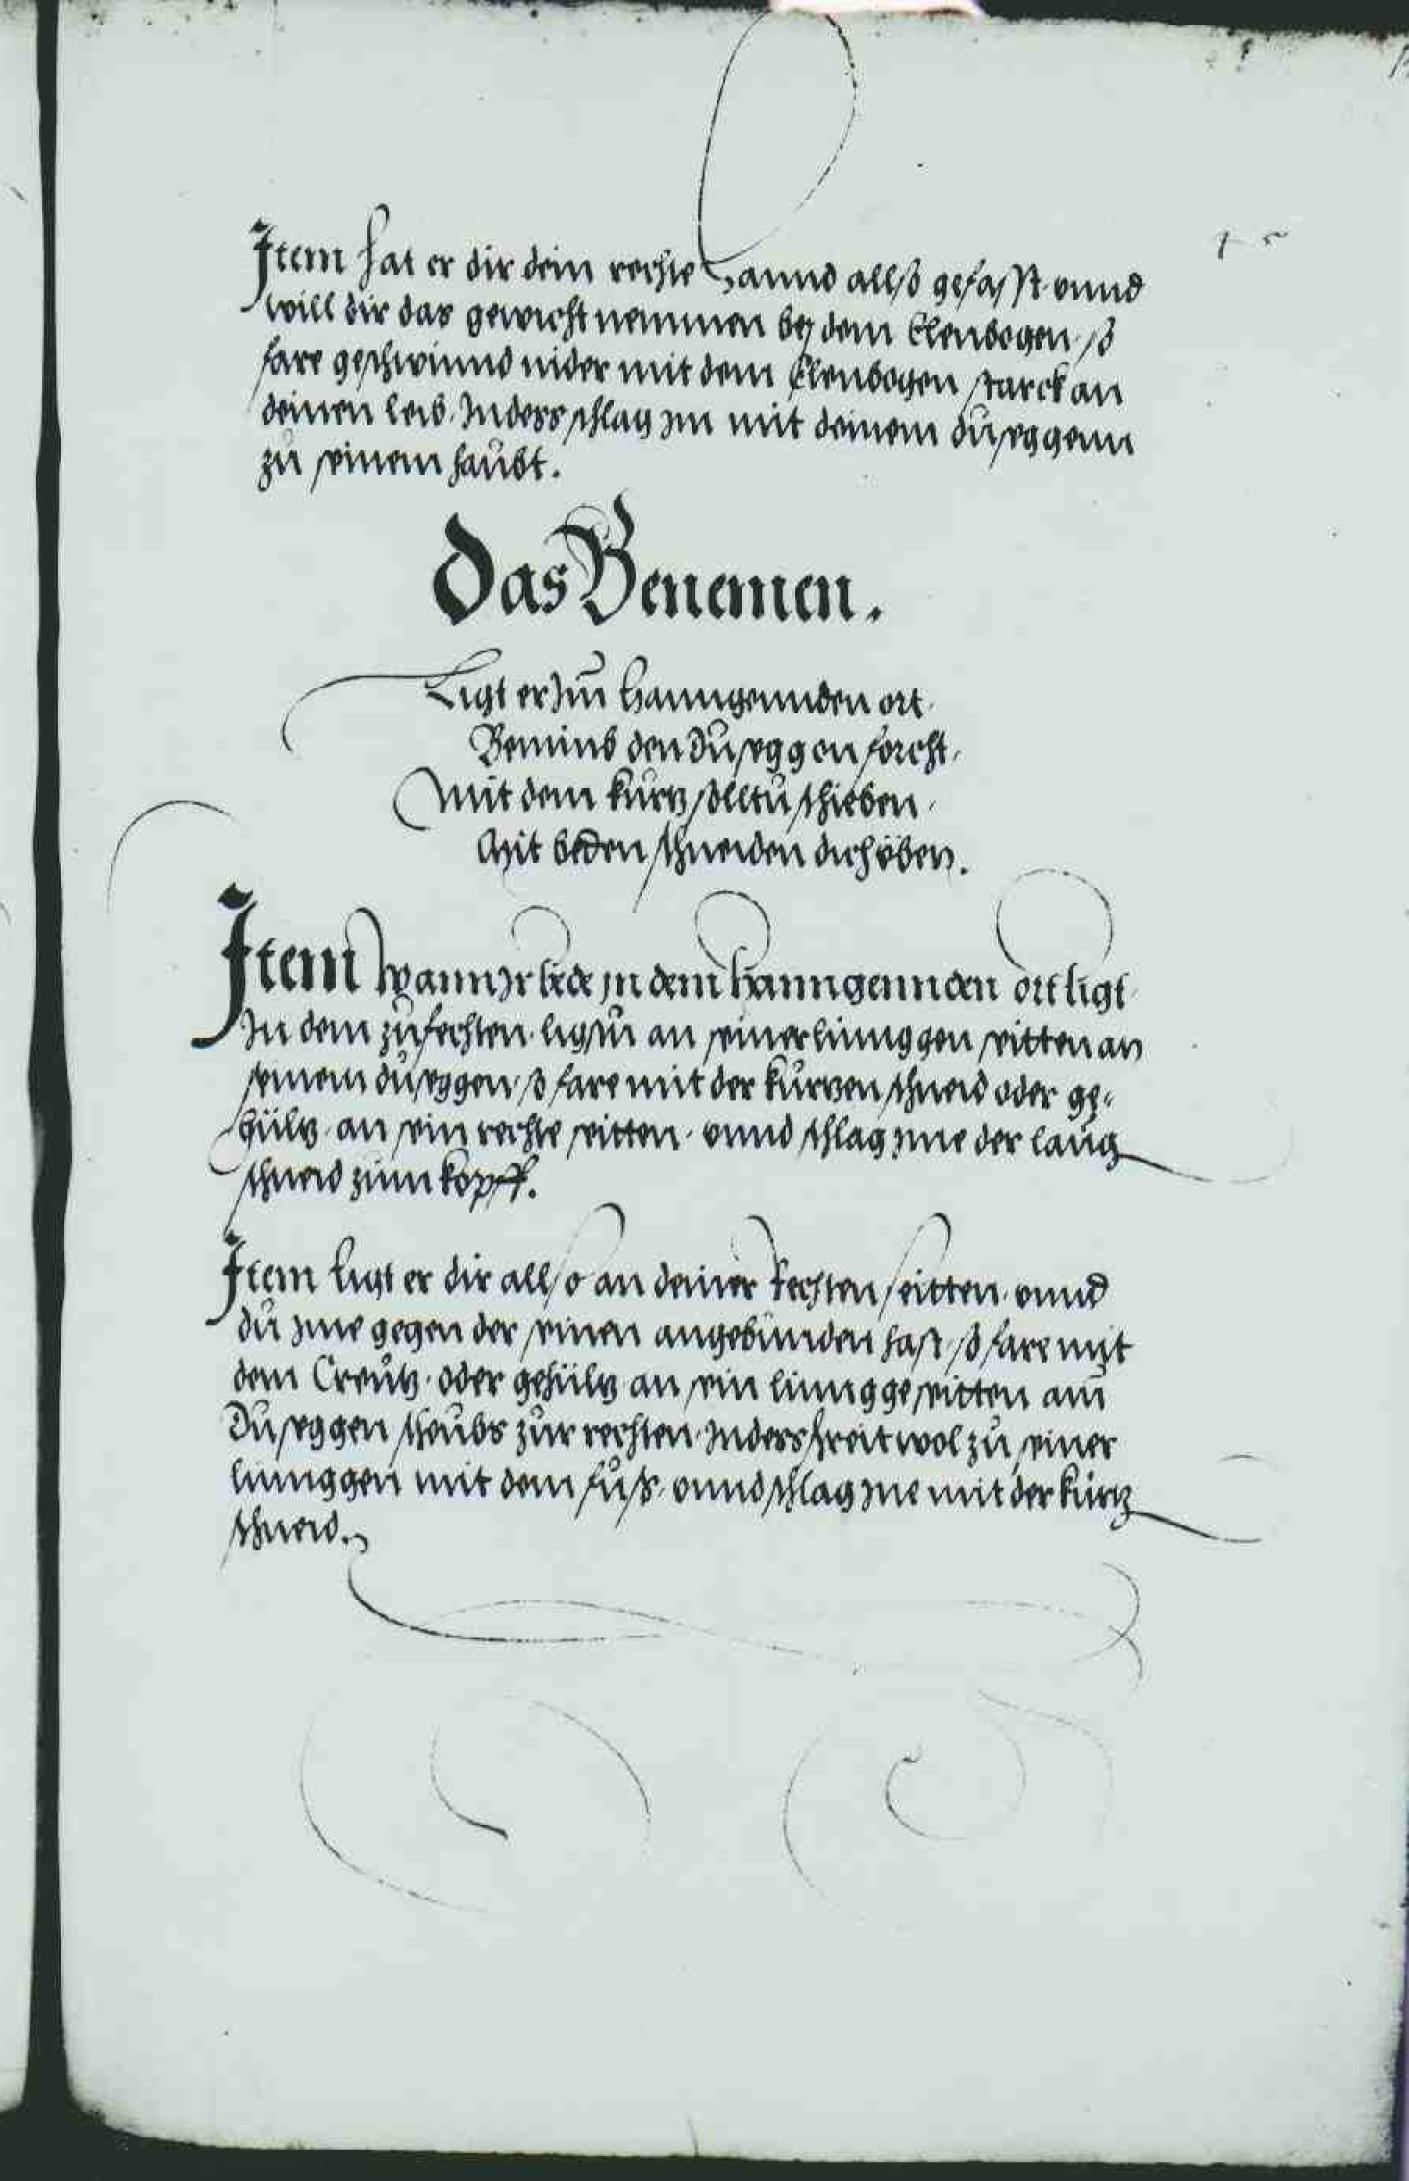 Item hat er dir dein rechte hannd allß gefasst vnnd
will dir das gewicht nemmen bej dem Elenbogen, ß
fare geschwinnd nider mit dem Elenbogen starck an
deinen leib. Inders schlag jm mit deinem dusyggenn
zů seinem haŭbt.
Das Benemen.
Ligt er Jm hanngennden ort,
Benimb den Dusyggen forcht,
Mit dem kurtz solltu schieben,
Mit beden schneiden dich üben.
Item wann Jr bede jn dem hanngennden ort ligt
In dem zufechten, ligstu an seiner linnggen seitten an
seinem dusyggen, ß fare mit der kurtzen schneid oder ge-
hültz an sein rechte seitten, vnnd schlag jme der lanng
schneid zum kopff.
Item ligt er dir allso an deiner Rechten seitten, vnnd
du jme gegen der seinen angebunden hast, ß fare mit
dem Creutz, oder gehültz an sein linngge seitten am
Dusyggen scheubs zur rechten, Inders schreit wol zu seiner
linnggen mit dem fuß, vnnd schlag jne mit der kurtz
schneid.